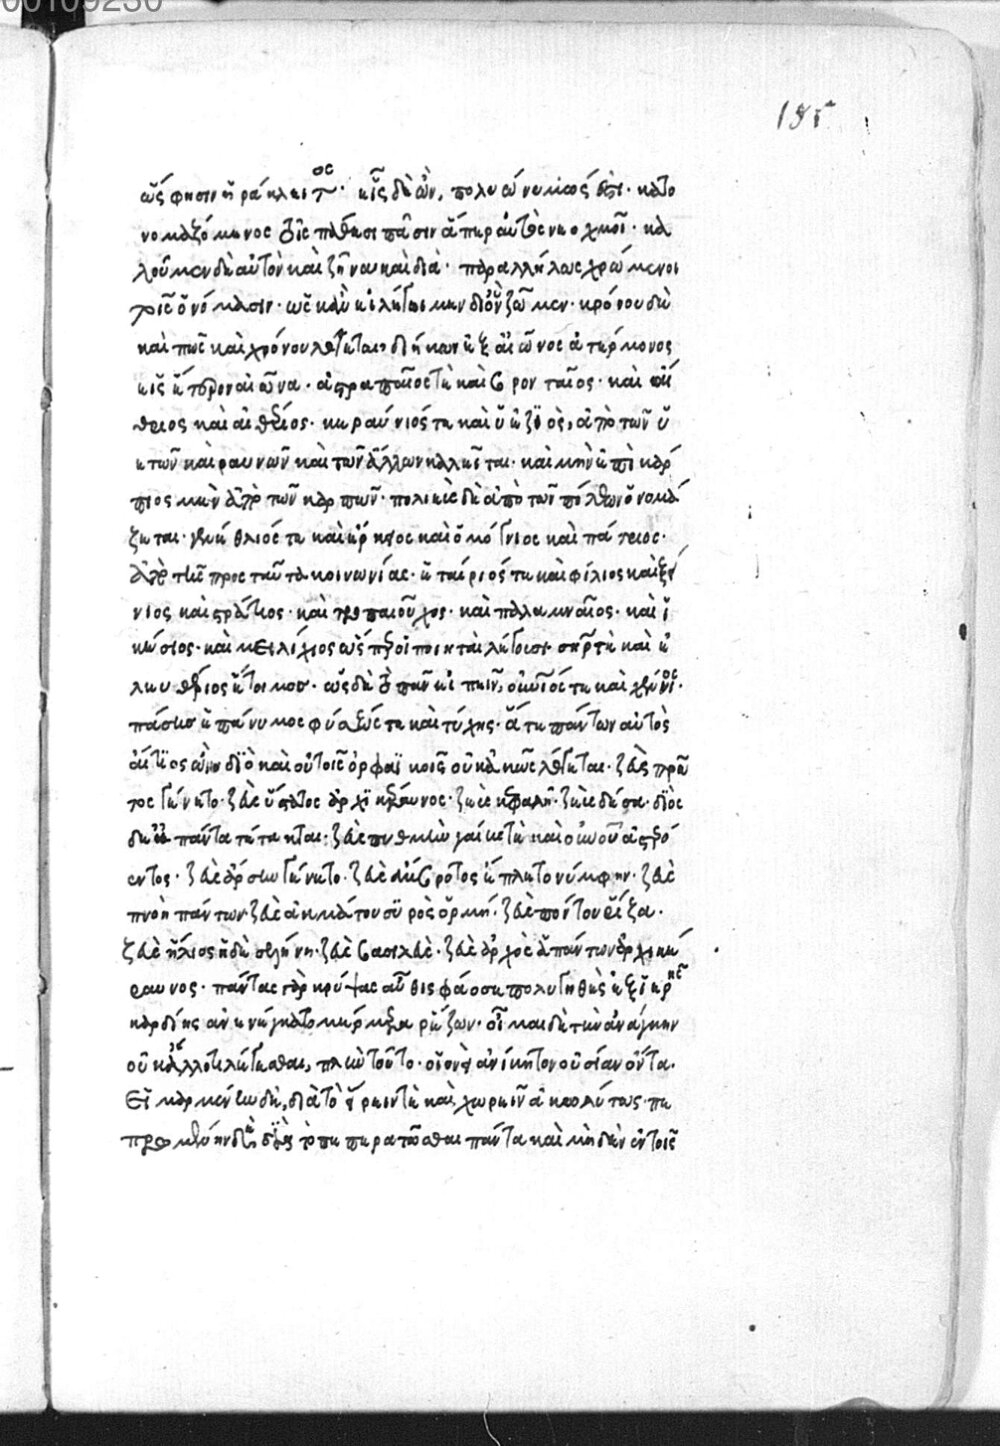 195
ὥς φησιν ἡράκλειτος. εἷς δὲ ὢν, πολυώνυμος ἐστι. κατο
νομαζόμενος τοῖς πάθεσι πᾶσιν ἅπερ αὐτὸς νεοχμοῖ. κα
λοῦμεν δὲ αὐτὸν καὶ ζῆνα καὶ δία. παραλλήλως χρώμενοι
τοῖς ὀνόμασιν. ὡς κἂν εἰ λέγοιμεν δι ὃν ζῶμεν. κρόνου δὲ
καὶ πῶς καὶ χρόνου λέγεται, διήκων ἐξ αἰῶνος ἀτέρμονος
εἰς ἕτερον αἰῶνα. ἀστραπαῖος τε καὶ βρονταῖος. καὶ αἴ
θριος καὶ αἰθέριος. κεραύνιός τε καὶ ὑέτϊος, ἀπὸ τῶν ὑ
ετῶν καὶ κεραυνῶν καὶ τῶν ἄλλων καλεῖται. καὶ μὴν ἐπικάρ
πιος μὲν ἀπὸ τῶν καρπῶν. πολιεὺς δὲ ἀπὸ τῶν πόλεων ὀνομά
ζεται. γενέθλιός τε καὶ ἑρκεῖος καὶ ὁμόγνιος καὶ πάτριος.
ἀπὸ τῆς πρὸς ταῦτα κοινωνίας. ἑταίριός τε καὶ φίλιος καὶ ξέ
νιος καὶ στράτιος. καὶ τροπαιοῦχος. καὶ παλαμναῖος. καὶ ἱ
κέσιος. καὶ μειλίχιος ὥσπερ οἱ ποιηταὶ λέγουσι. σωτήρ τε καὶ ἐ
λευθέριος ἐτοίμως. ὡς δὲ τὸ πᾶν εἰπεῖν, οὐράνιός τε καὶ χθόνιος.
πάσης ἐπώνυμος φύσεώς τε καὶ τύχης. ἅτε πάντων αὐτὸς
αἴτϊος ὤν. δϊὸ καὶ ἐν τοῖς ὀρφϊκοῖς οὐ κακῶς λέγεται. ζεὺς πρῶ
τος γένετο. ζεὺς ὕστατος ἀρχϊκέραυνος. ζεὺς κεφαλὴ. ζεὺς μέσα. δϊὸς
δ' ἐκ πάντα τέτυκται. ζεὺς πυθμὴν γαίης τε καὶ οὐρανοῦ ἀστερό
εντος. ζεὺς ἄρσην γένετο. ζεὺς ἄμβροτος ἔπλετο νύμφη. ζεὺς
πνοὴ πάντων. ζεὺς ἀκαμάτου πυρὸς ὁρμή. ζεὺς πόντου ῥίζα.
ζεὺς ἥλιος ἠδὲ σελήνη. ζεὺς βασιλεὺς. ζεὺς ἀρχὸς ἁπάντων ἀρχικέ
ραυνος. πάντας γὰρ κρύψας αὖθις φάος ἐς πολυγηθὲς ἐξ ἱερῆς
καρδίης ἀνενέγκατο μέρμερα ῥέζων. οἶμαι δὲ τὴν ἀνάγκην
οὐκ ἄλλο τι λέγεσθαι, πλὴν τοῦτο. οἱονεὶ ἀνίκητον οὐσίαν ὄντα.
Εἱμαρμένην δὲ, διὰ τὸ εἴρειν τε καὶ χωρεῖν ἀκωλύτως. πε
πρωμένην δὲ διὰ τὸ πεπερατῶσθαι πάντα καὶ μηδὲν ἐν τοῖς